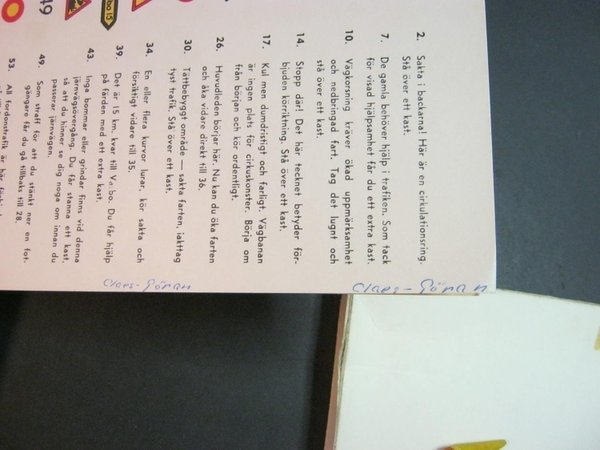 2. Sakta i backarna! Här är en cirkulationsring.
Stå över ett kast.
7. De gamla behöver hjälp i trafiken. Som tack
för visad hjälpsamhet får du ett extra kast.
10. Vägkorsning kräver ökad uppmärksamhet
och nedbringad fart. Tag det lugnt och
stå över ett kast.
14. Stopp där! Det här tecknet betyder för-
bjuden körriktning. Stå över ett kast.
17. Kul men dumdristigt och farligt. Vägbanan
är ingen plats för cirkuskonster. Börja om
från början och kör ordentligt.
26. Huvudleden börjar här. Nu kan du öka farten
och åka vidare direkt till 36.
30. Tättbebyggt område — sakta farten, iakttag
tyst trafik. Stå över ett kast.
34. En eller flera kurvor lurar, kör sakta och
försiktigt vidare till 35.
39. Det är 15 km. kvar till Vabo. Du får hjälp
på färden med ett extra kast.
43. Inga bommar eller grindar finns vid denna
järnvägsövergång. Du får stanna ett kast.
så att du hinner se dig noga om innan du
passerar järnvägen.
49. Som straff för att du stänkt ner en fot-
gängare får du gå tillbaks till 28.
53. All fordonstrafik är här
Claes-Göran
Claes-Göran
49
bo 15